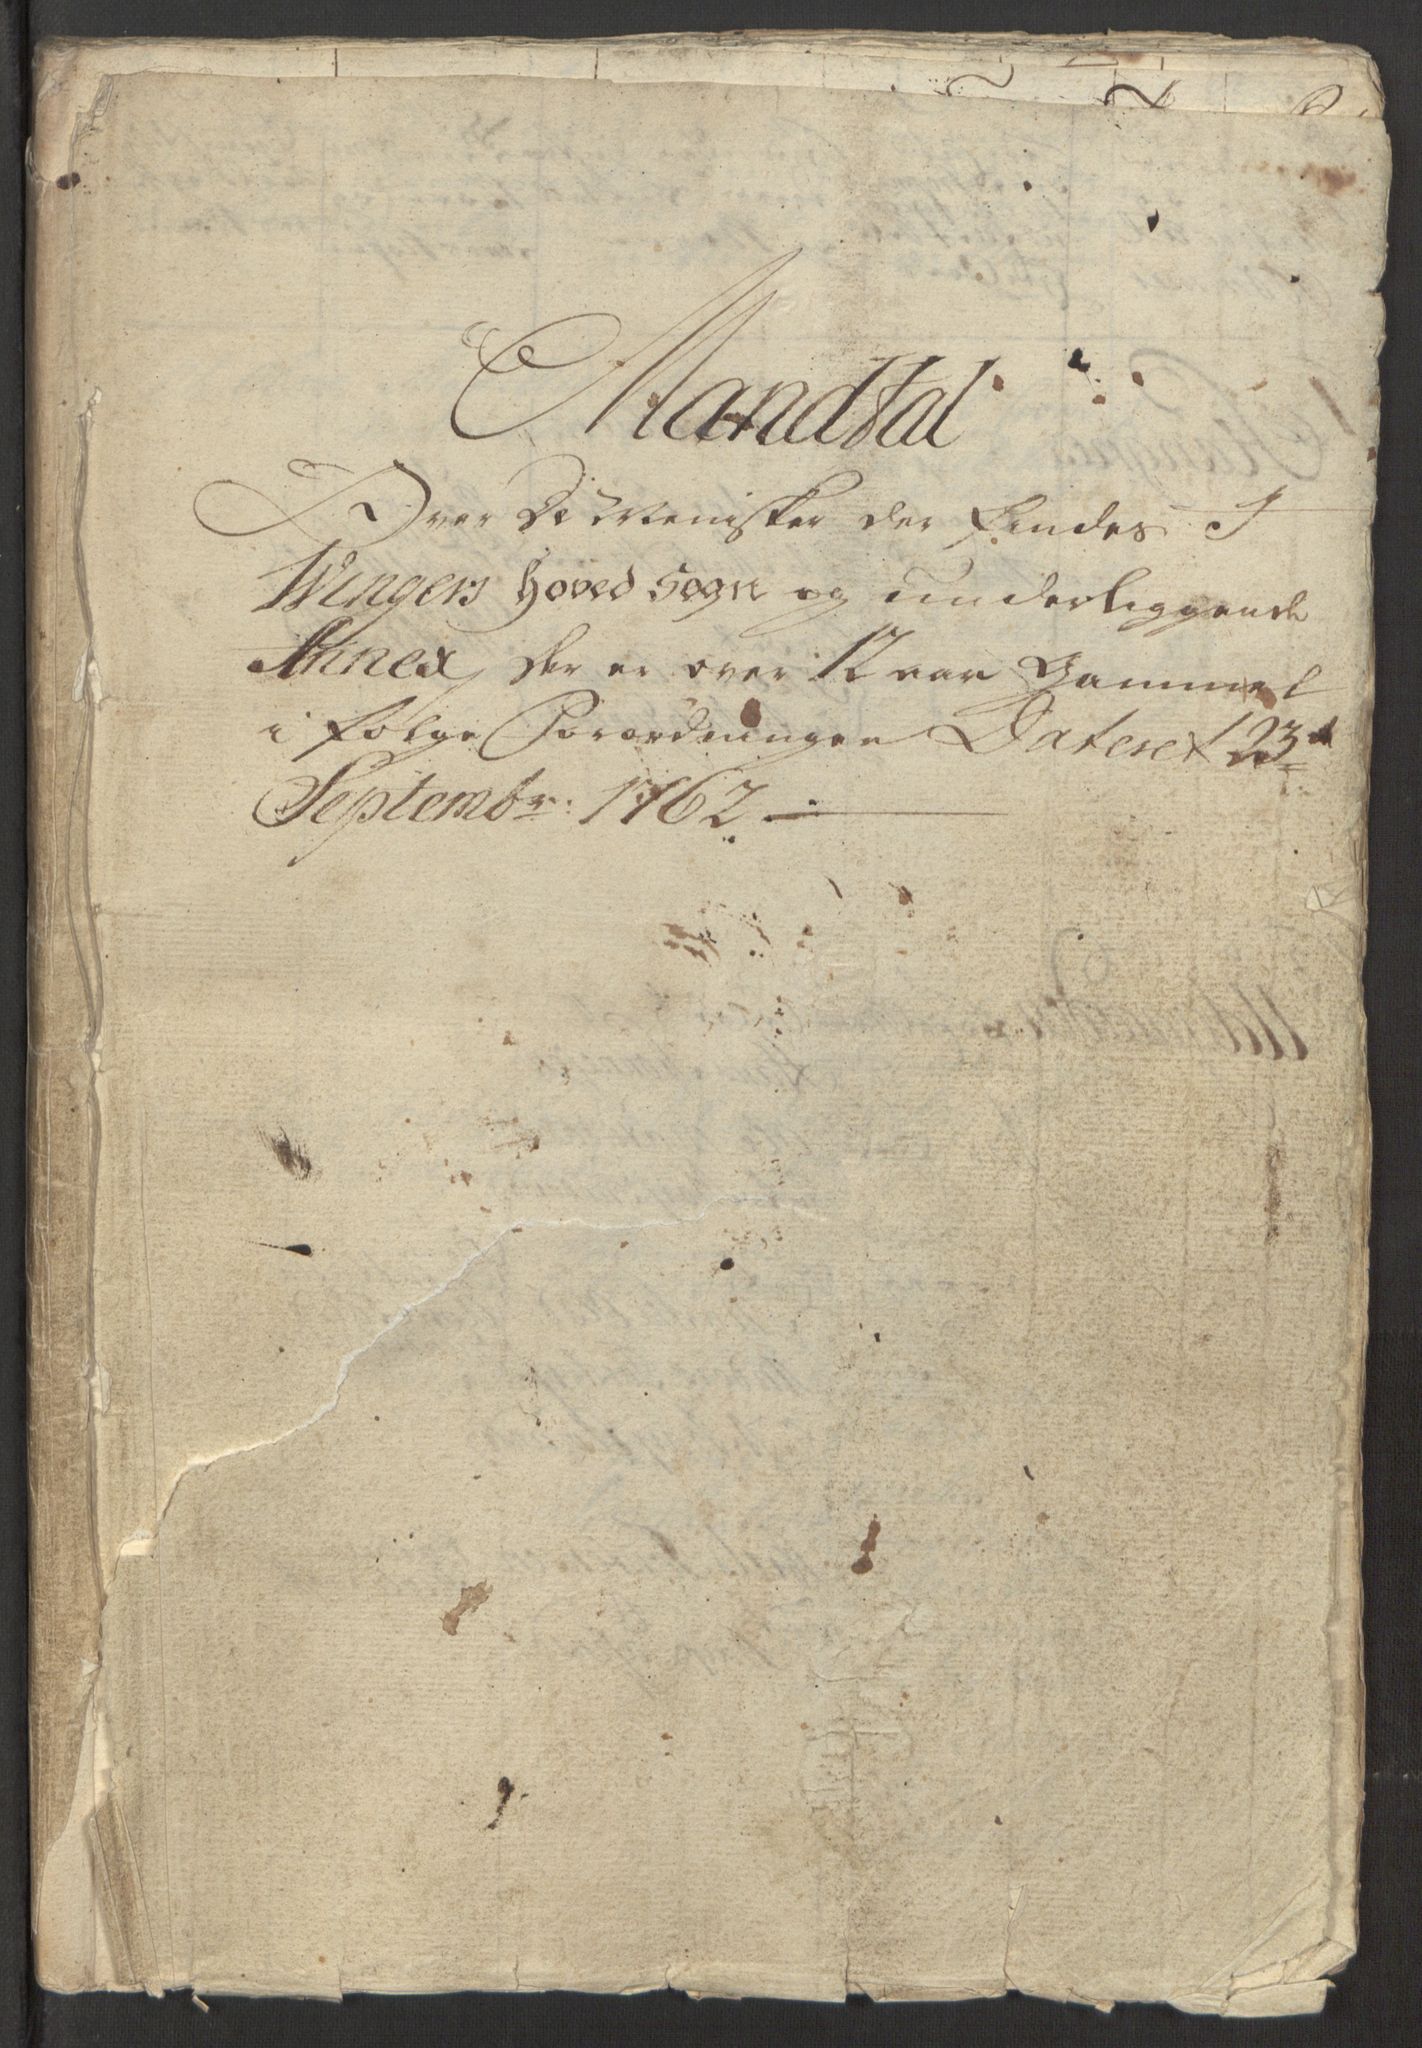 Mandtal
Over De Menisker der findes I
Wingers Hoved Sogn og underliggende
Annex, der er over 12 aar Gammel
i følge Forordningen Dateret 23d
Septembr: 1762